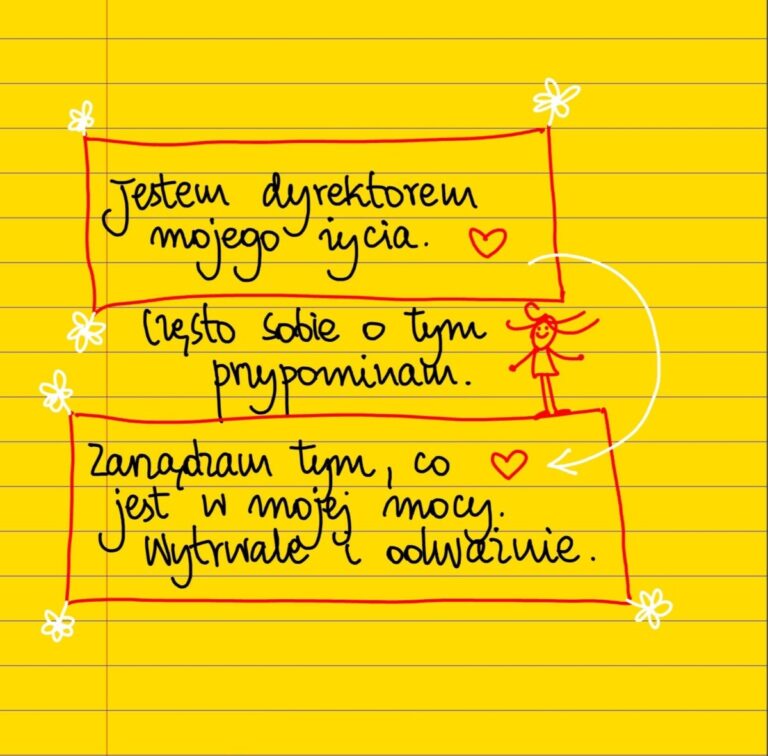 Jestem dyrektorem
mojego życia.
Często sobie o tym
przypominam.
Zarządzam tym, co
jest w mojej mocy.
Wytrwale i odważnie.